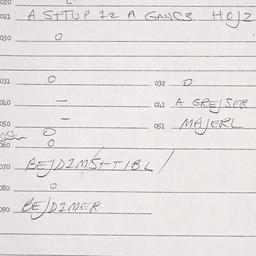 020
021 A STTUP 12 A GANC3 HOJZ
030 O
031 O 032 O
040 — 041 A GREJSER
050 — 051 MAJERL
O
060 O
070 BEJDIMSTTIBL/
080 O
090 BEJDIMER